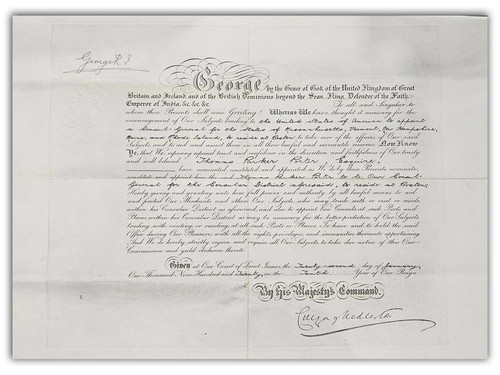 George R. I.
George by the Grace of God, of the United Kingdom of Great
Britain and Ireland, and of the British Dominions beyond the Seas, King, Defender of the Faith,
Emperor of India, &c. &c. &c. To all and Singular to
whom these Presents shall come Greeting! Whereas We have thought it necessary for the
encouragement of Our Subjects trading to the United States of America to appoint
a Consul-General for the States of Massachusetts, Vermont, New Hampshire,
Maine, and Rhode Island, to reside at Boston to take care of the affairs of Our said
Subjects and to aid and assist them in all their lawful and mercantile concerns Now Know
Ye, that We reposing especial trust and confidence in the discretion and faithfulness of Our trusty
and well beloved Thomas Esquire,
have nominated, constituted and appointed as We do by these Presents nominate,
constitute and appoint him the said Thomas to be Our Consul-
General for the Consular District aforesaid, to reside at Boston,
Hereby giving and granting unto him full power and authority by all lawful means to aid
and protect Our Merchants and others Our Subjects, who may trade with or visit or reside
within his Consular District as aforesaid, and also to appoint at such Ports and
Places within his Consular District as may be necessary for the better protection of Our Subjects
trading with, visiting or residing, at all such Ports or Places. To have and to hold the said
Office during Our Pleasure, with all the rights, privileges, and immunities thereunto appertaining.
And We do hereby strictly enjoin and require all Our Subjects to take due notice of this Our
Commission and yield Obedience thereto
Given at Our Court of Saint James, the Twenty-second day of January,
One Thousand Nine Hundred and Twenty, in the Tenth Year of Our Reign.
By His Majesty's Command.
Curzon of Kedleston